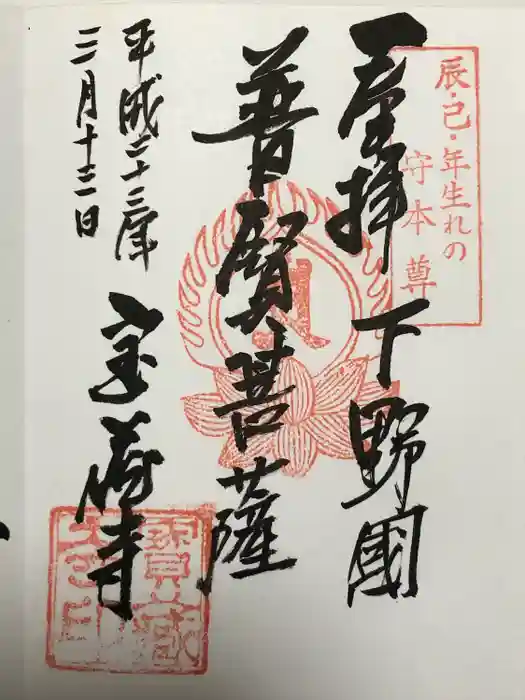 辰・巳・年生れの
守本尊
奉拝 下野國
普賢菩薩
平成二十三年
三月十三日
宝蔵寺
寶藏
寺之印